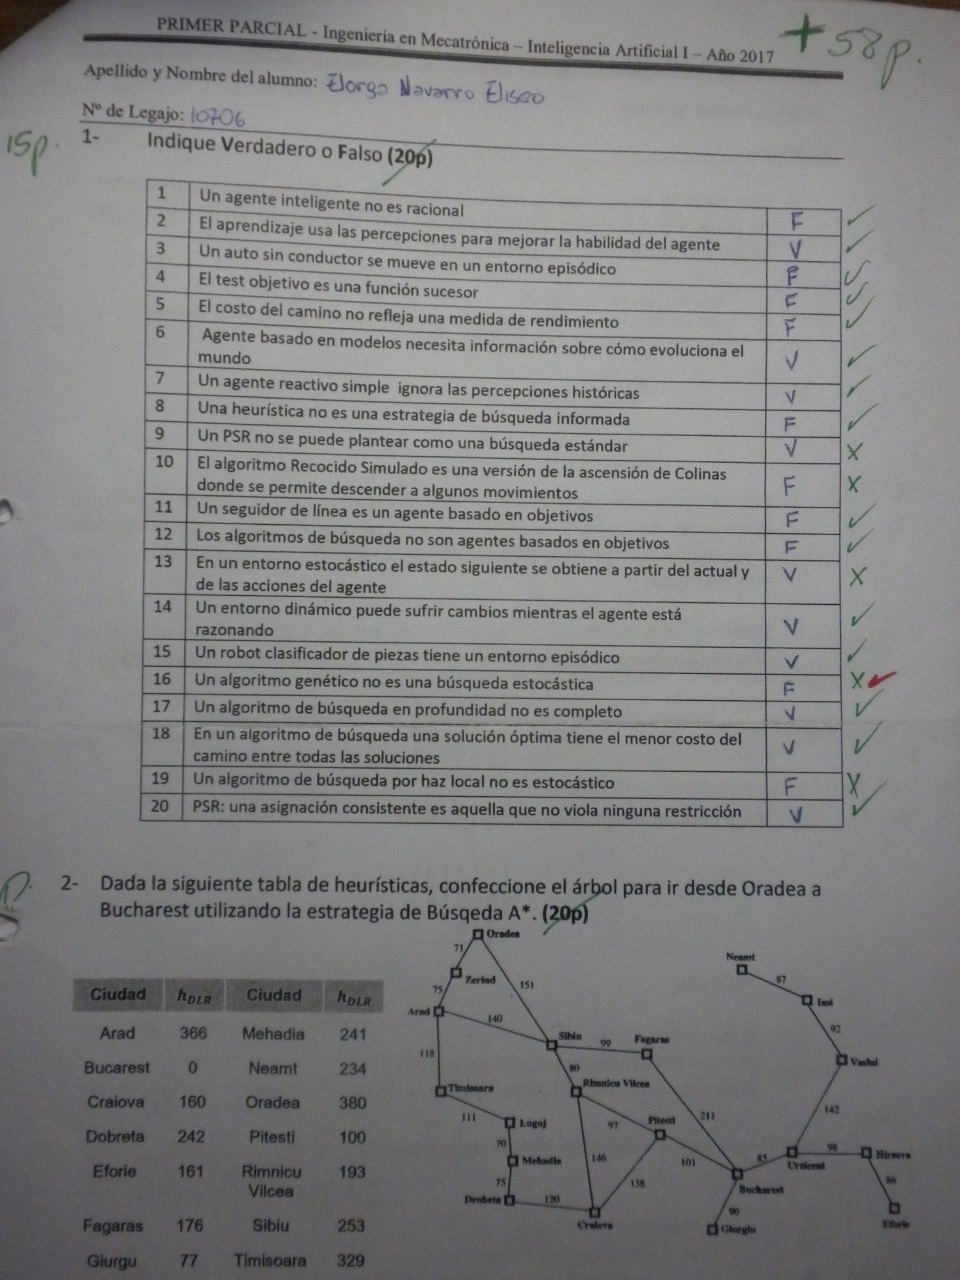 PRIMER PARCIAL - Ingeniería en Mecatrónica – Inteligencia Artificial I – Año 2017
+58p.
Apellido y Nombre del alumno: Elorga Navarro Eliseo
Nº de Legajo: 10706
15p.
1- Indique Verdadero o Falso (20p)
1 Un agente inteligente no es racional F
2 El aprendizaje usa las percepciones para mejorar la habilidad del agente V
3 Un auto sin conductor se mueve en un entorno episódico F
4 El test objetivo es una función sucesor F
5 El costo del camino no refleja una medida de rendimiento F
6 Agente basado en modelos necesita información sobre cómo evoluciona el
mundo V
7 Un agente reactivo simple ignora las percepciones históricas V
8 Una heurística no es una estrategia de búsqueda informada F
9 Un PSR no se puede plantear como una búsqueda estándar V
10 El algoritmo Recocido Simulado es una versión de la ascensión de Colinas
donde se permite descender a algunos movimientos F
11 Un seguidor de línea es un agente basado en objetivos F
12 Los algoritmos de búsqueda no son agentes basados en objetivos F
13 En un entorno estocástico el estado siguiente se obtiene a partir del actual y
de las acciones del agente V
14 Un entorno dinámico puede sufrir cambios mientras el agente está
razonando V
15 Un robot clasificador de piezas tiene un entorno episódico V
16 Un algoritmo genético no es una búsqueda estocástica F
17 Un algoritmo de búsqueda en profundidad no es completo V
18 En un algoritmo de búsqueda una solución óptima tiene el menor costo del
camino entre todas las soluciones V
19 Un algoritmo de búsqueda por haz local no es estocástico F
20 PSR: una asignación consistente es aquella que no viola ninguna restricción V
2- Dada la siguiente tabla de heurísticas, confeccione el árbol para ir desde Oradea a
Bucharest utilizando la estrategia de Búsqeda A*. (20p)
Ciudad hDLR Ciudad hDLR
Arad 366 Mehadia 241
Bucarest 0 Neamt 234
Craiova 160 Oradea 380
Dobreta 242 Pitesti 100
Eforie 161 Rimnicu
Vilcea 193
Fagaras 176 Sibiu 253
Giurgu 77 Timisoara 329
Oradea
71
Neamt
Zerind
151
87
75
Iasi
Arad
140
92
Sibiu
99
Fagaras
118
Vaslui
80
Timisoara
Rimnicu Vilcea
111
Lugoj
97
Pitesti
211
142
70
Mehadia
146
101
85
98
Hirsova
Urziceni
75
138
86
Bucharest
Drobeta
120
90
Craiova
Giurgiu
Eforie